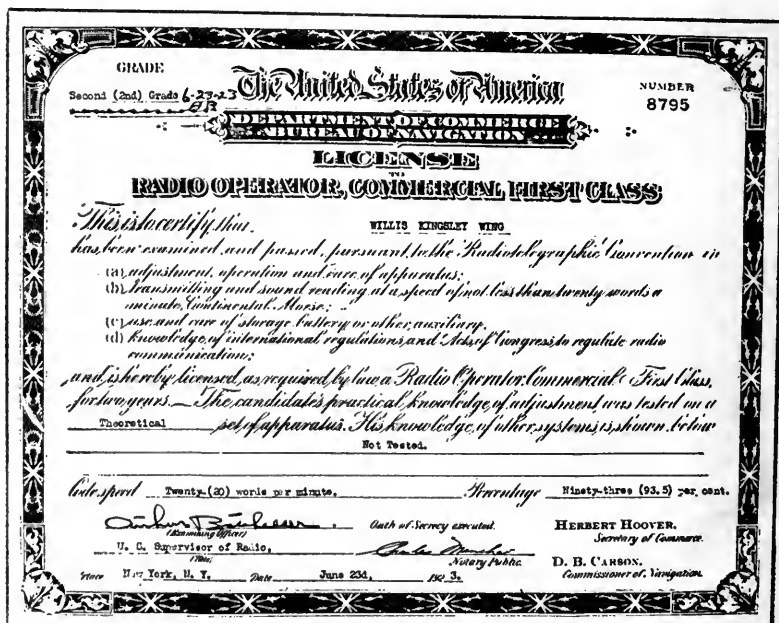 GRADE
Second (2nd) Grade 6-23-23
The United States of America
NUMBER
8795
DEPARTMENT OF COMMERCE
BUREAU OF NAVIGATION
LICENSE
RADIO OPERATOR, COMMERCIAL FIRST CLASS
This is to certify that WILLIS KINGSLEY WING
has been examined and passed, pursuant to the Radiotelegraphic Convention in
(a) adjustment, operation and care of apparatus;
(b) transmitting and sound reading at a speed of not less than twenty words a
minute, Continental Morse;
(c) use and care of storage battery or other auxiliary.
(d) knowledge of international regulations, and Acts of Congress to regulate radio
communication;
and is hereby licensed, as required by law, a Radio Operator, Commercial First Class,
for two years. The candidate's practical knowledge of adjustment was tested on a
Theoretical set of apparatus. His knowledge of other systems is shown below
Not Tested.
Code speed Twenty (20) words per minute. Percentage Ninety-three (93.5) per cent.
(Examining Officer)
Oath of Secrecy executed.
HERBERT HOOVER,
Secretary of Commerce.
U. S. Supervisor of Radio,
(Title)
Notary Public.
D. B. CARSON,
Commissioner of Navigation.
Place New York, N. Y. Date June 23d, 1923.